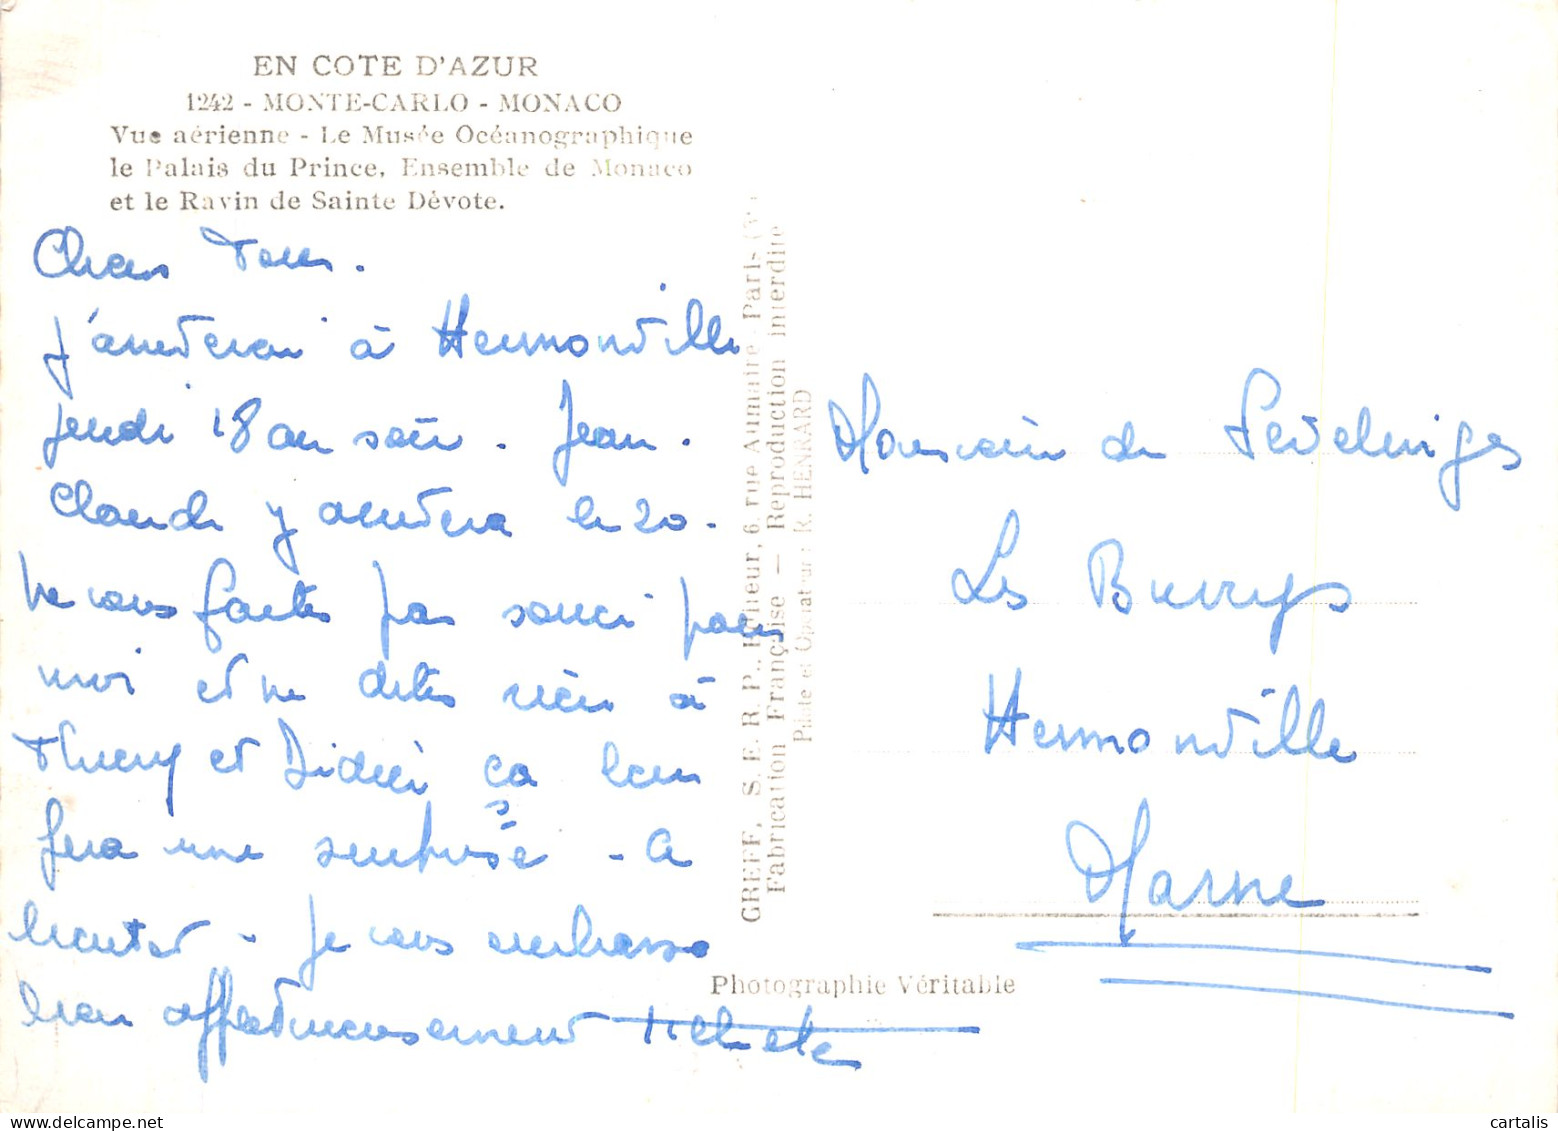 EN COTE D'AZUR
1242 - MONTE-CARLO - MONACO
Vue aérienne - Le Musée Océanographique
le Palais du Prince, Ensemble de Monaco
et le Ravin de Sainte Dévote.
Chers Tous.
J'arriverai à Hermonville
jeudi 18 au soir. Jean.
Claude y arrivera le 20.
Ne vous faites pas souci pour
moi et ne dites rien à
Thierry et Didier ça leur
fera une surprise - A
bientôt - Je vous embrasse
bien affectueusement
GREFF, S. E. R. P., Editeur, 6, rue Aumaire - Paris (V
Fabrication Française — Reproduction interdite
Pilote et Opérateur : R. HENRARD
Photographie Véritable
Monsieur de
Les
Hermonville
Marne
cartalis
www.delcampe.net